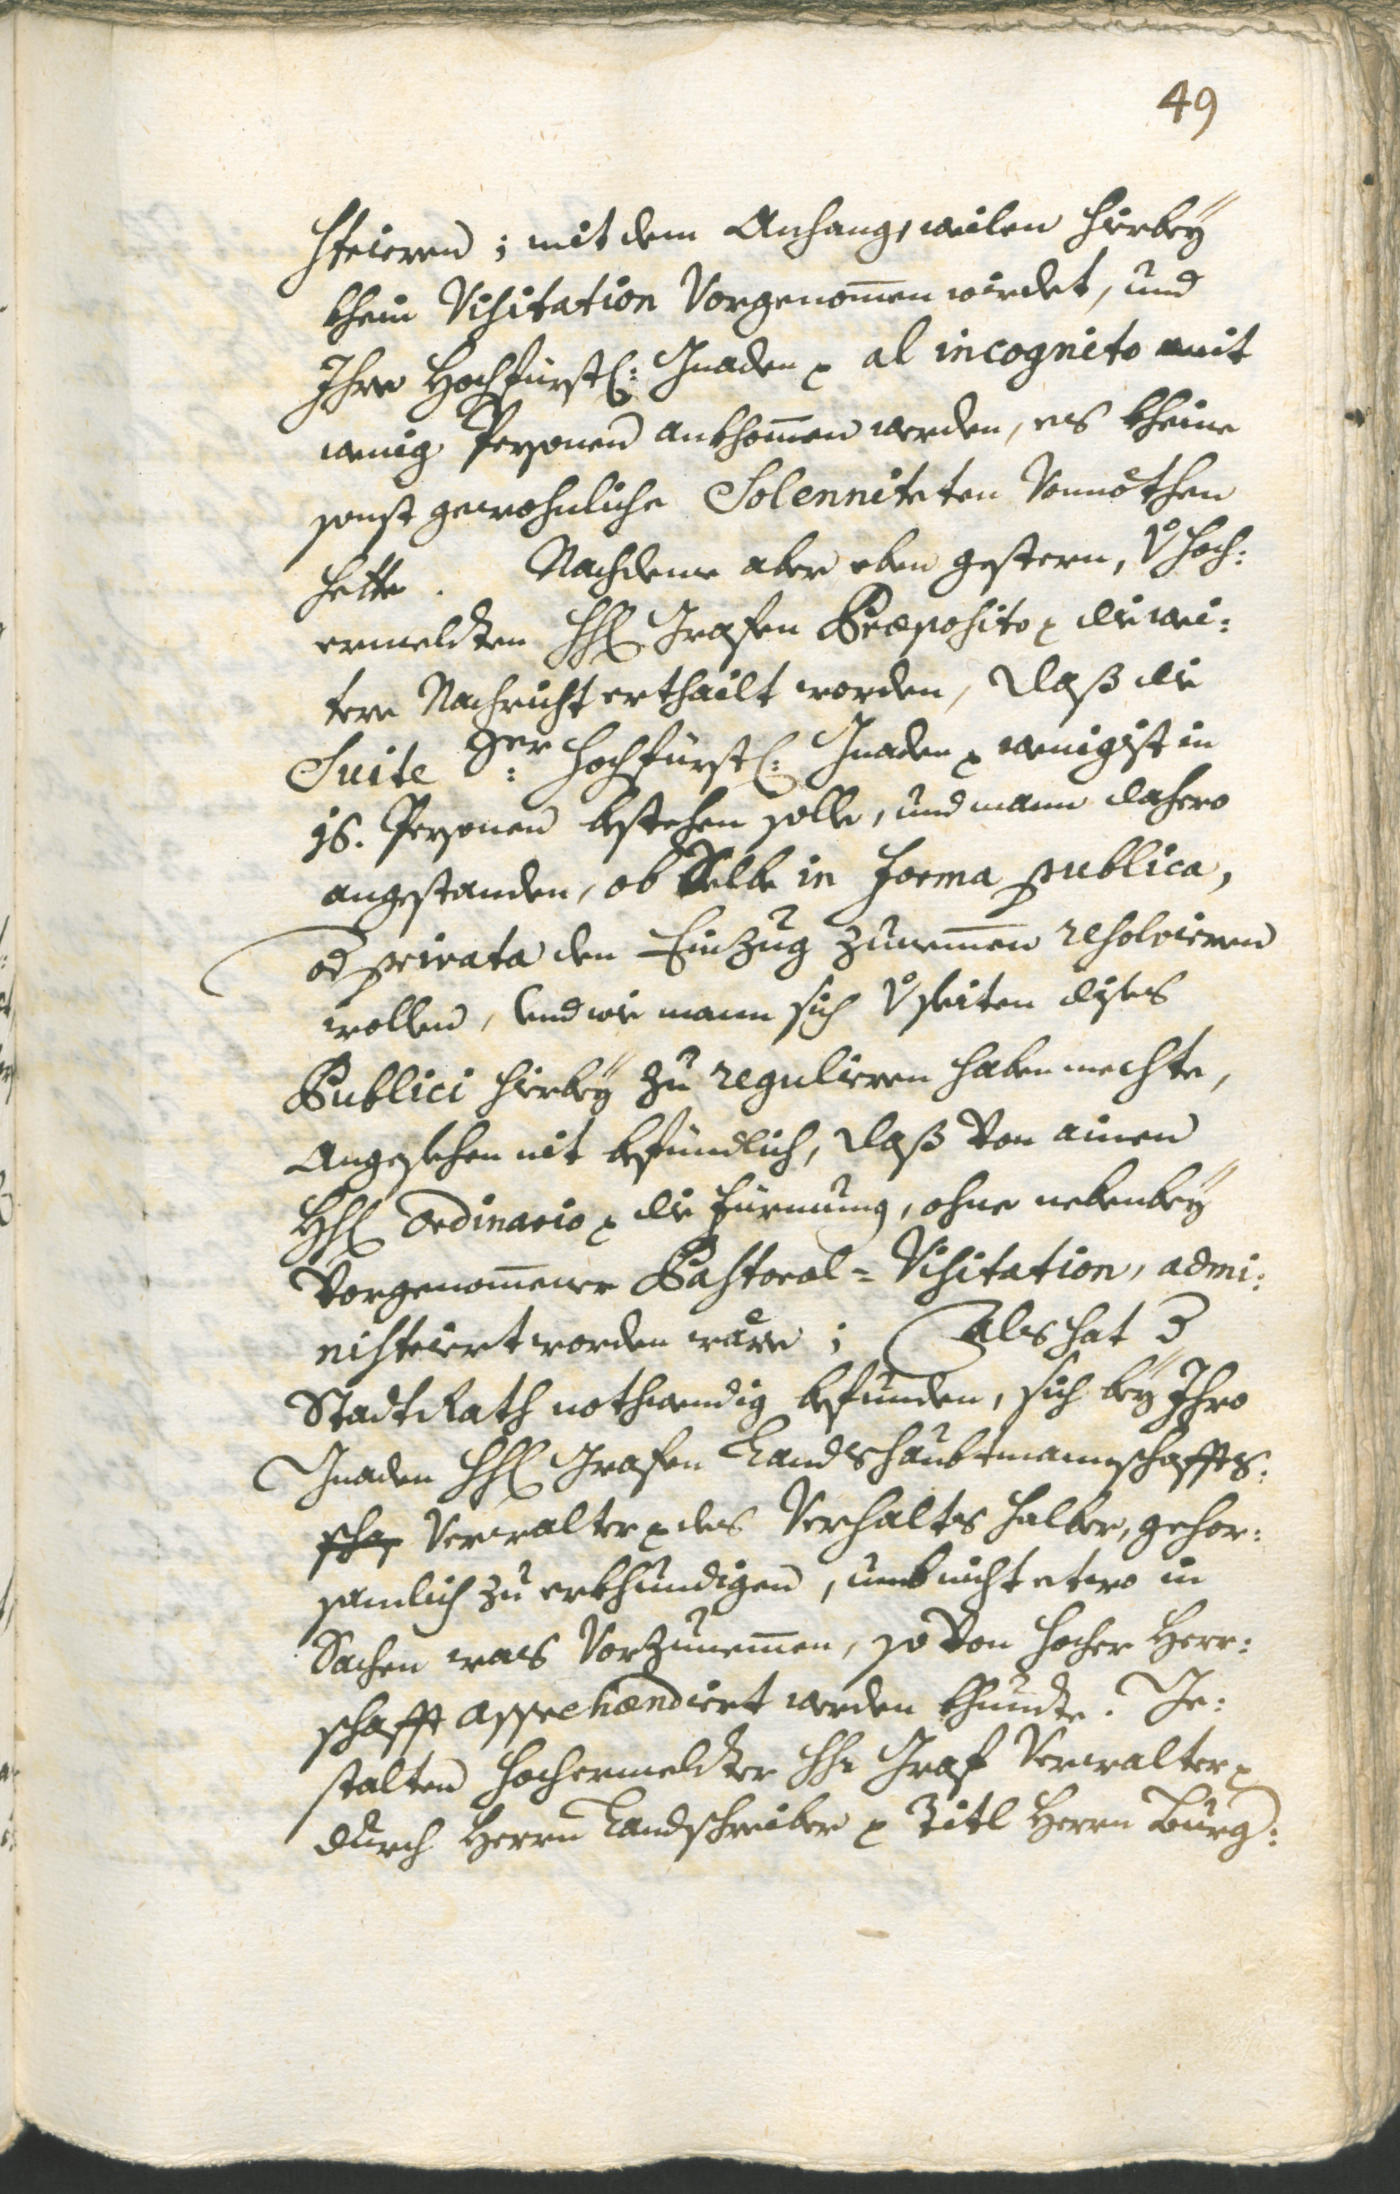 49
striern; mit dem Anhang, weilen hierbeÿ
khein Visitation Vorgenom̄en wirdet, und
Ihre Hochfürstl: Gnaden p al incognito mit
wenig Personen ankhom̄en werden, es kheine
sonst gewohnliche Solenniteten Vonnöthen
hette. Nachdeme aber eben gestern, v hoch:
ermeldten HH Grafen Præposito p die wei:
tere Nachricht erthailt worden, daß die
Suite Ger: hochfürstl: Gnaden p wenigist in
16. Personen bestehen solle, und mann dahero
angestanden, ob Selbe in forma publica,
od privata den Einzug zunem̄en resolvieren
wollen, und wie mann sich v seiten dises
Publici hierbeÿ zu regulieren haben mechte,
Angesehen nit befündlich, daß von ainen
HH Ordinario p die Fürmung, ohne nebenbeÿ
Vorgenom̄ener Pastoral-Visitation, admi:
nistriert worden wäre; Als hat
StadtRath nothwendig befunden, sich beÿ Ihro
Gnaden HH Grafen Landshaubtmannschaffts:
Verwalter p des Verhalts halber, gehor:
samlich zu erkhundigen, umb nicht etwo in
Sachen was Vorzunem̄en, so von hocher Herr:
schafft apprehændiert werden khundte. Ge:
stalten hochermeldter HHr Graf Verwalter p
durch Herrn Landschreiber p Titl Herrn Burg: